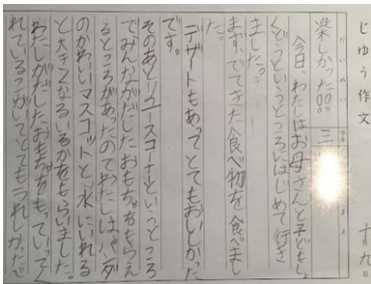 じゆう作文 十月九日
だいめい
楽しかった〇〇。 三
今日、わたしはお母さんと子どもし
くどうというところにはじめて行き
ました。
まず、でてきた食べ物を食べまし
た。
デザートもあってとてもおいしかった
です。
そのあとリユースコーナというところ
でみんながだしたおもちゃをもらえ
るところがあったのでわたしはパンダ
のかわいいマスコットと、水にいれる
と大きくなるいるかをもらいました。
わたしがだしたおもちゃをもっていってく
れているこがいてとてもうれしかったで